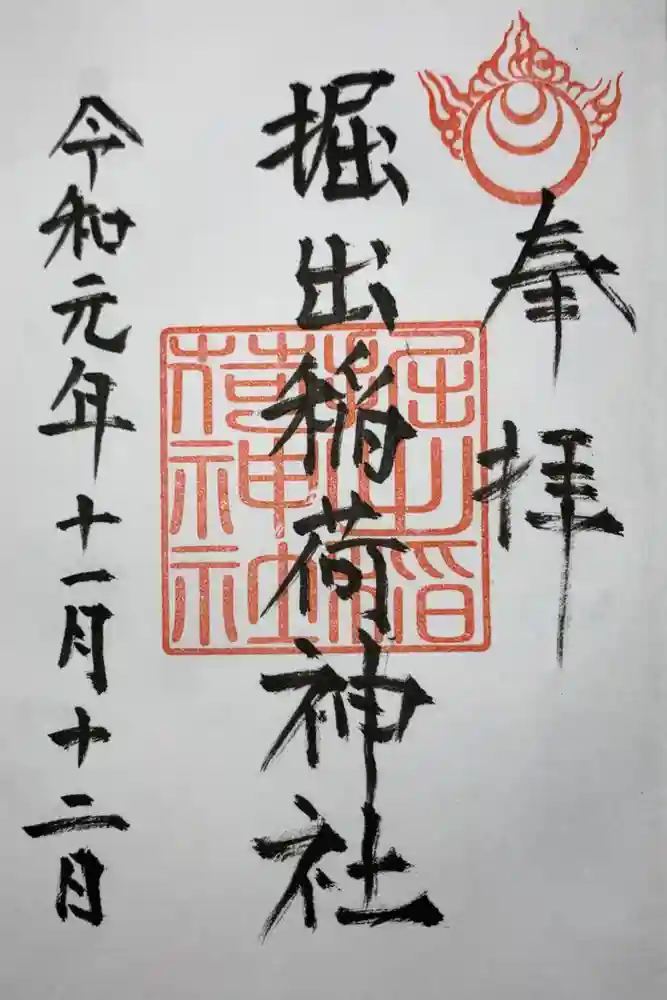 奉拝
掘出稲荷神社
令和元年十一月十二日
掘出稲
荷神社